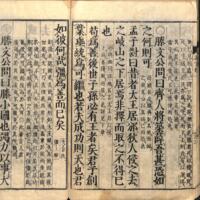 ○滕文公問曰齊人將築薛吾甚恐如
之何則可
孟子對曰昔者大王居邠狄人侵之去
之岐山之下居焉非擇而取之不得已
苟爲善後世子孫必有王者矣君子創
業垂統爲可繼也若夫成功則天也君
如彼何哉彊爲善而已矣
○滕文公問曰滕小國也竭力以事大